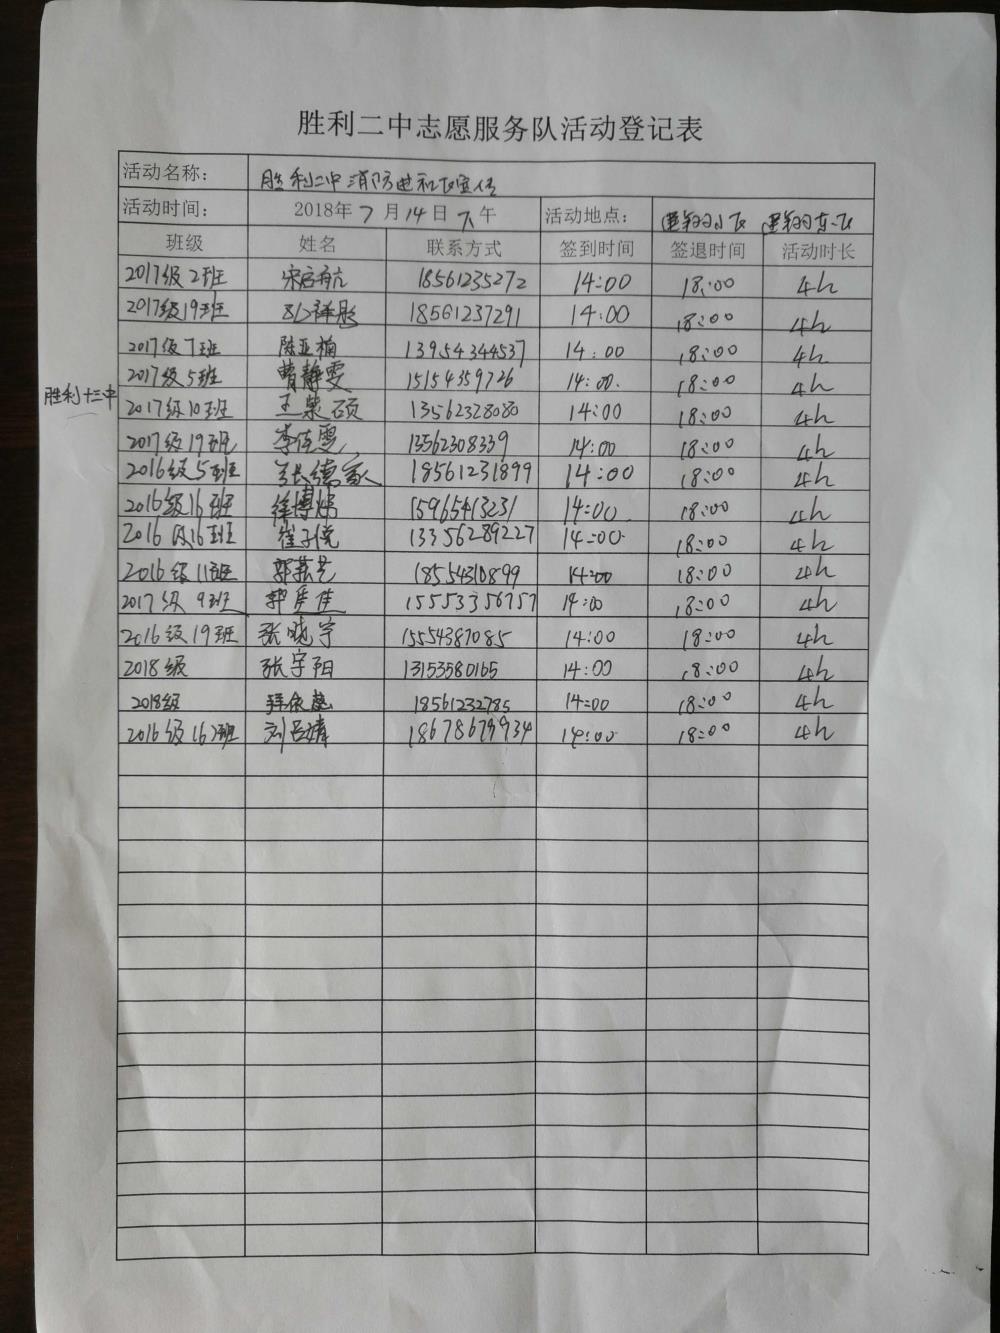 胜利二中志愿服务队活动登记表
活动名称： 胜利二中消防进社区宣传
活动时间： 2018年7月14日下午 活动地点：
班级 姓名 联系方式 签到时间 签退时间 活动时长
2017级2班 宋启航 18561235272 14:00 18:00 4h
2017级19班 18561237291 14:00 18:00 4h
2017级7班 陈亚楠 13954344537 14:00 18:00 4h
2017级5班 曹静雯 15154359726 14:00. 18:00 4h
胜利十三中 2017级10班 王紫硕 13562328080 14:00 18:00 4h
2017级19班 李佳雯 13562308339 14:00 18:00 4h
2016级5班 张德家 18561231899 14:00 18:00 4h
2016级16班 徐博炜 15965413231 14:00 18:00 4h
2016级16班 崔子悦 13356289227 14:00 18:00 4h
2016级11班 郭芸艺 18554310899 14:00 18:00 4h
2017级9班 郭佳 15553356757 14:00 18:00 4h
2016级19班 张晓宇 15554387085 14:00 18:00 4h
2018级 张宇阳 13153580165 14:00 18:00 4h
2018级 18561232785 14:00 18:00 4h
2016级16班 刘吕婧 18678679934 14:00 18:00 4h